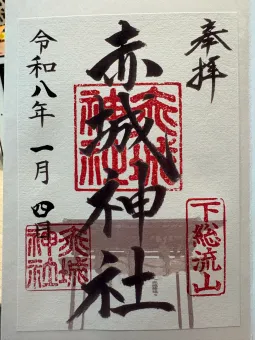 奉拝
赤城神社
赤城神社
下総流山
令和八年一月四日
赤城神社